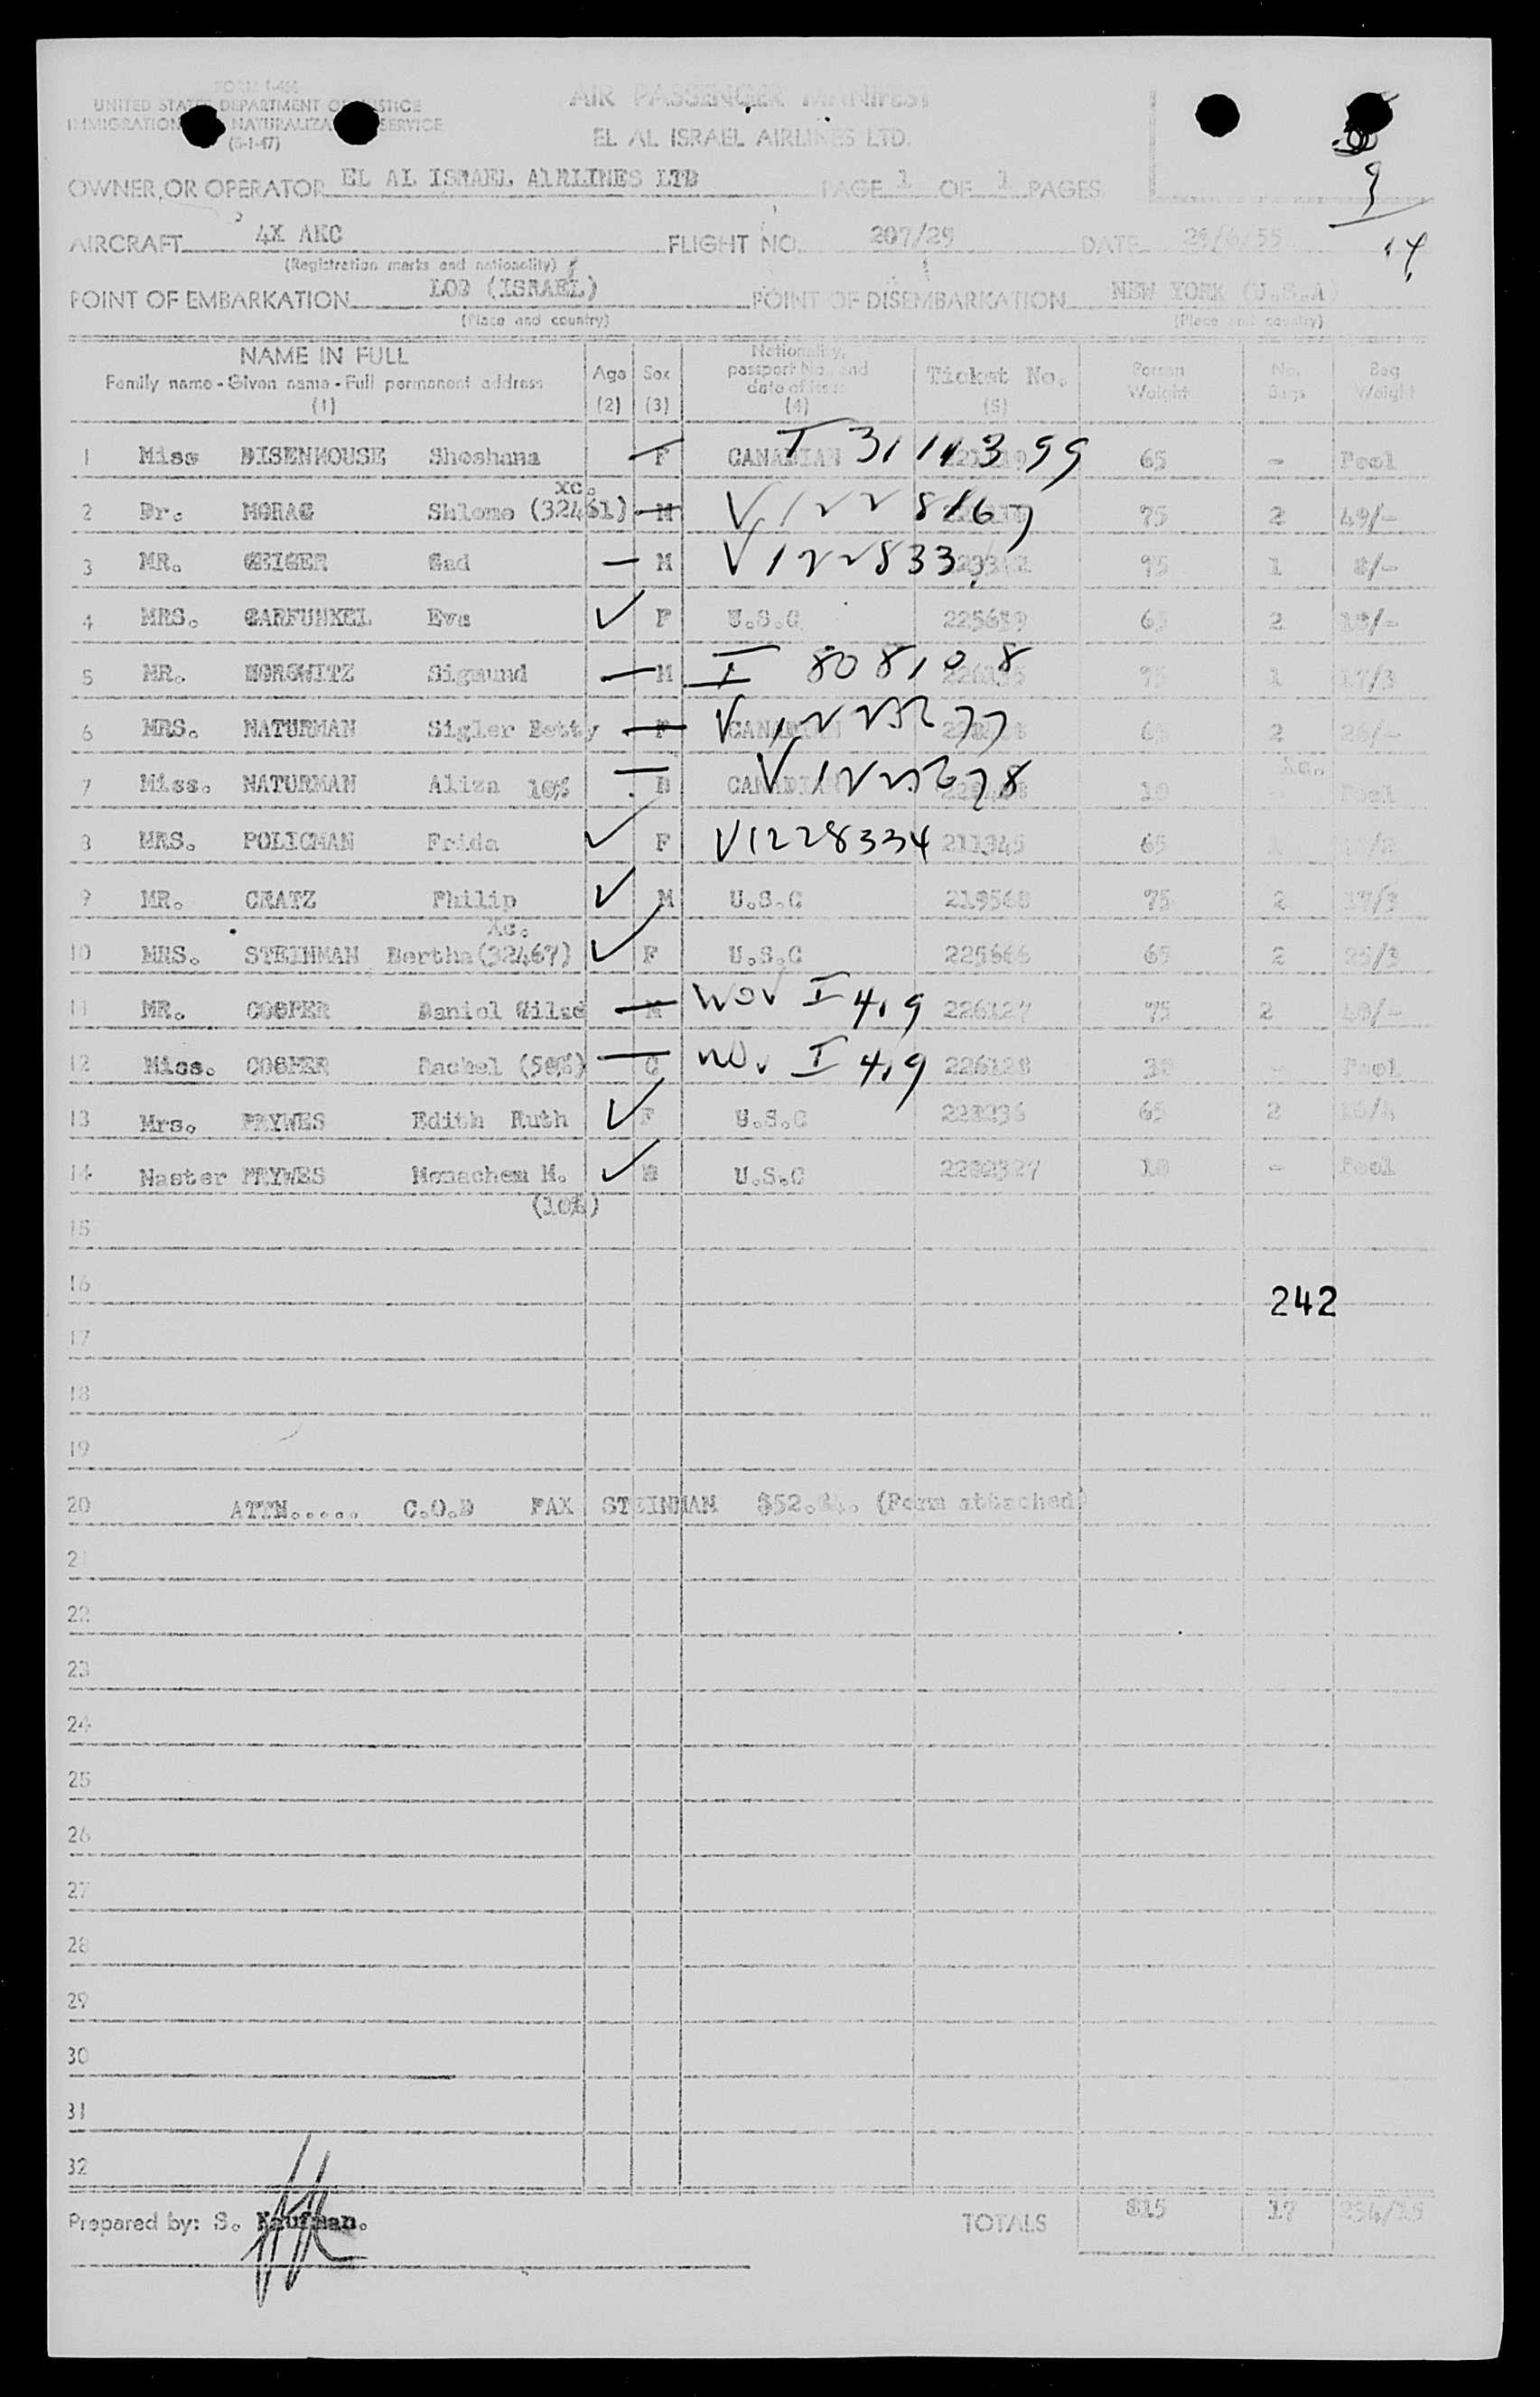 FORM I-466
UNITED STATES DEPARTMENT OF JUSTICE
IMMIGRATION NATURALIZA SERVICE
(5-1-47)
AIR PASSENGER MANIFEST
EL AL ISRAEL AIRLINES LTD.
9
14
OWNER OR OPERATOR EL AL ISRAEL AIRLINES LTD PAGE 1 OF 1 PAGES
AIRCRAFT 4X AKC FLIGHT NO. 207/29 DATE 29/6/55
(Registration marks and nationality)
POINT OF EMBARKATION LOD (ISRAEL) POINT OF DISEMBARKATION NEW YORK (U.S.A)
(Place and country) (Place and country)
NAME IN FULL
Family name - Given name - Full permanent address
(1)
Age
(2)
Sex
(3)
Nationality,
passport No. and
date of issue
(4)
Ticket No.
(5)
Person
Weight
No.
Bags
Bag
Weight
1 Miss DISENHOUSE Shoshana F CANADIAN T 3111399 65 - Pool
xc.
2 Dr. MORAG Shlomo (32461) M V1228167 75 2 49/-
3 MR. GEIGER Gad M V122833 75 1 8/-
4 MRS. GARFUNKEL Eva F U.S.C 225639 65 2 19/-
5 MR. HOROWITZ Sigmund M I 808108 75 1 17/3
6 MRS. NATURMAN Sigler Betty F CANADIAN V 65 2 26/-
xc.
7 Miss. NATURMAN Aliza 10% CANADIAN V 10 Pool
8 MRS. POLICMAN Frida F V1228334 211345 65
9 MR. CRATZ Philip M U.S.C 219568 75 2 17/3
xc.
10 MRS. STEINMAN Bertha (32467) F U.S.C 225666 65 2 25/3
11 MR. COOPER Daniel Gilad M I 419 226127 75 2 40/-
12 Miss. COOPER Rachel (50%) C I 419 226128 - Pool
13 Mrs. PRYWES Edith Ruth F U.S.C 65 2
14 Master PRYWES Menachem M. U.S.C 2202327 10 - Pool
(10%)
15
16
242
17
18
19
20 ATTN..... C.O.D PAX STEINMAN (Form attached)
21
22
23
24
25
26
27
28
29
30
31
32
Prepared by: S. Kaufman. TOTALS 815 17